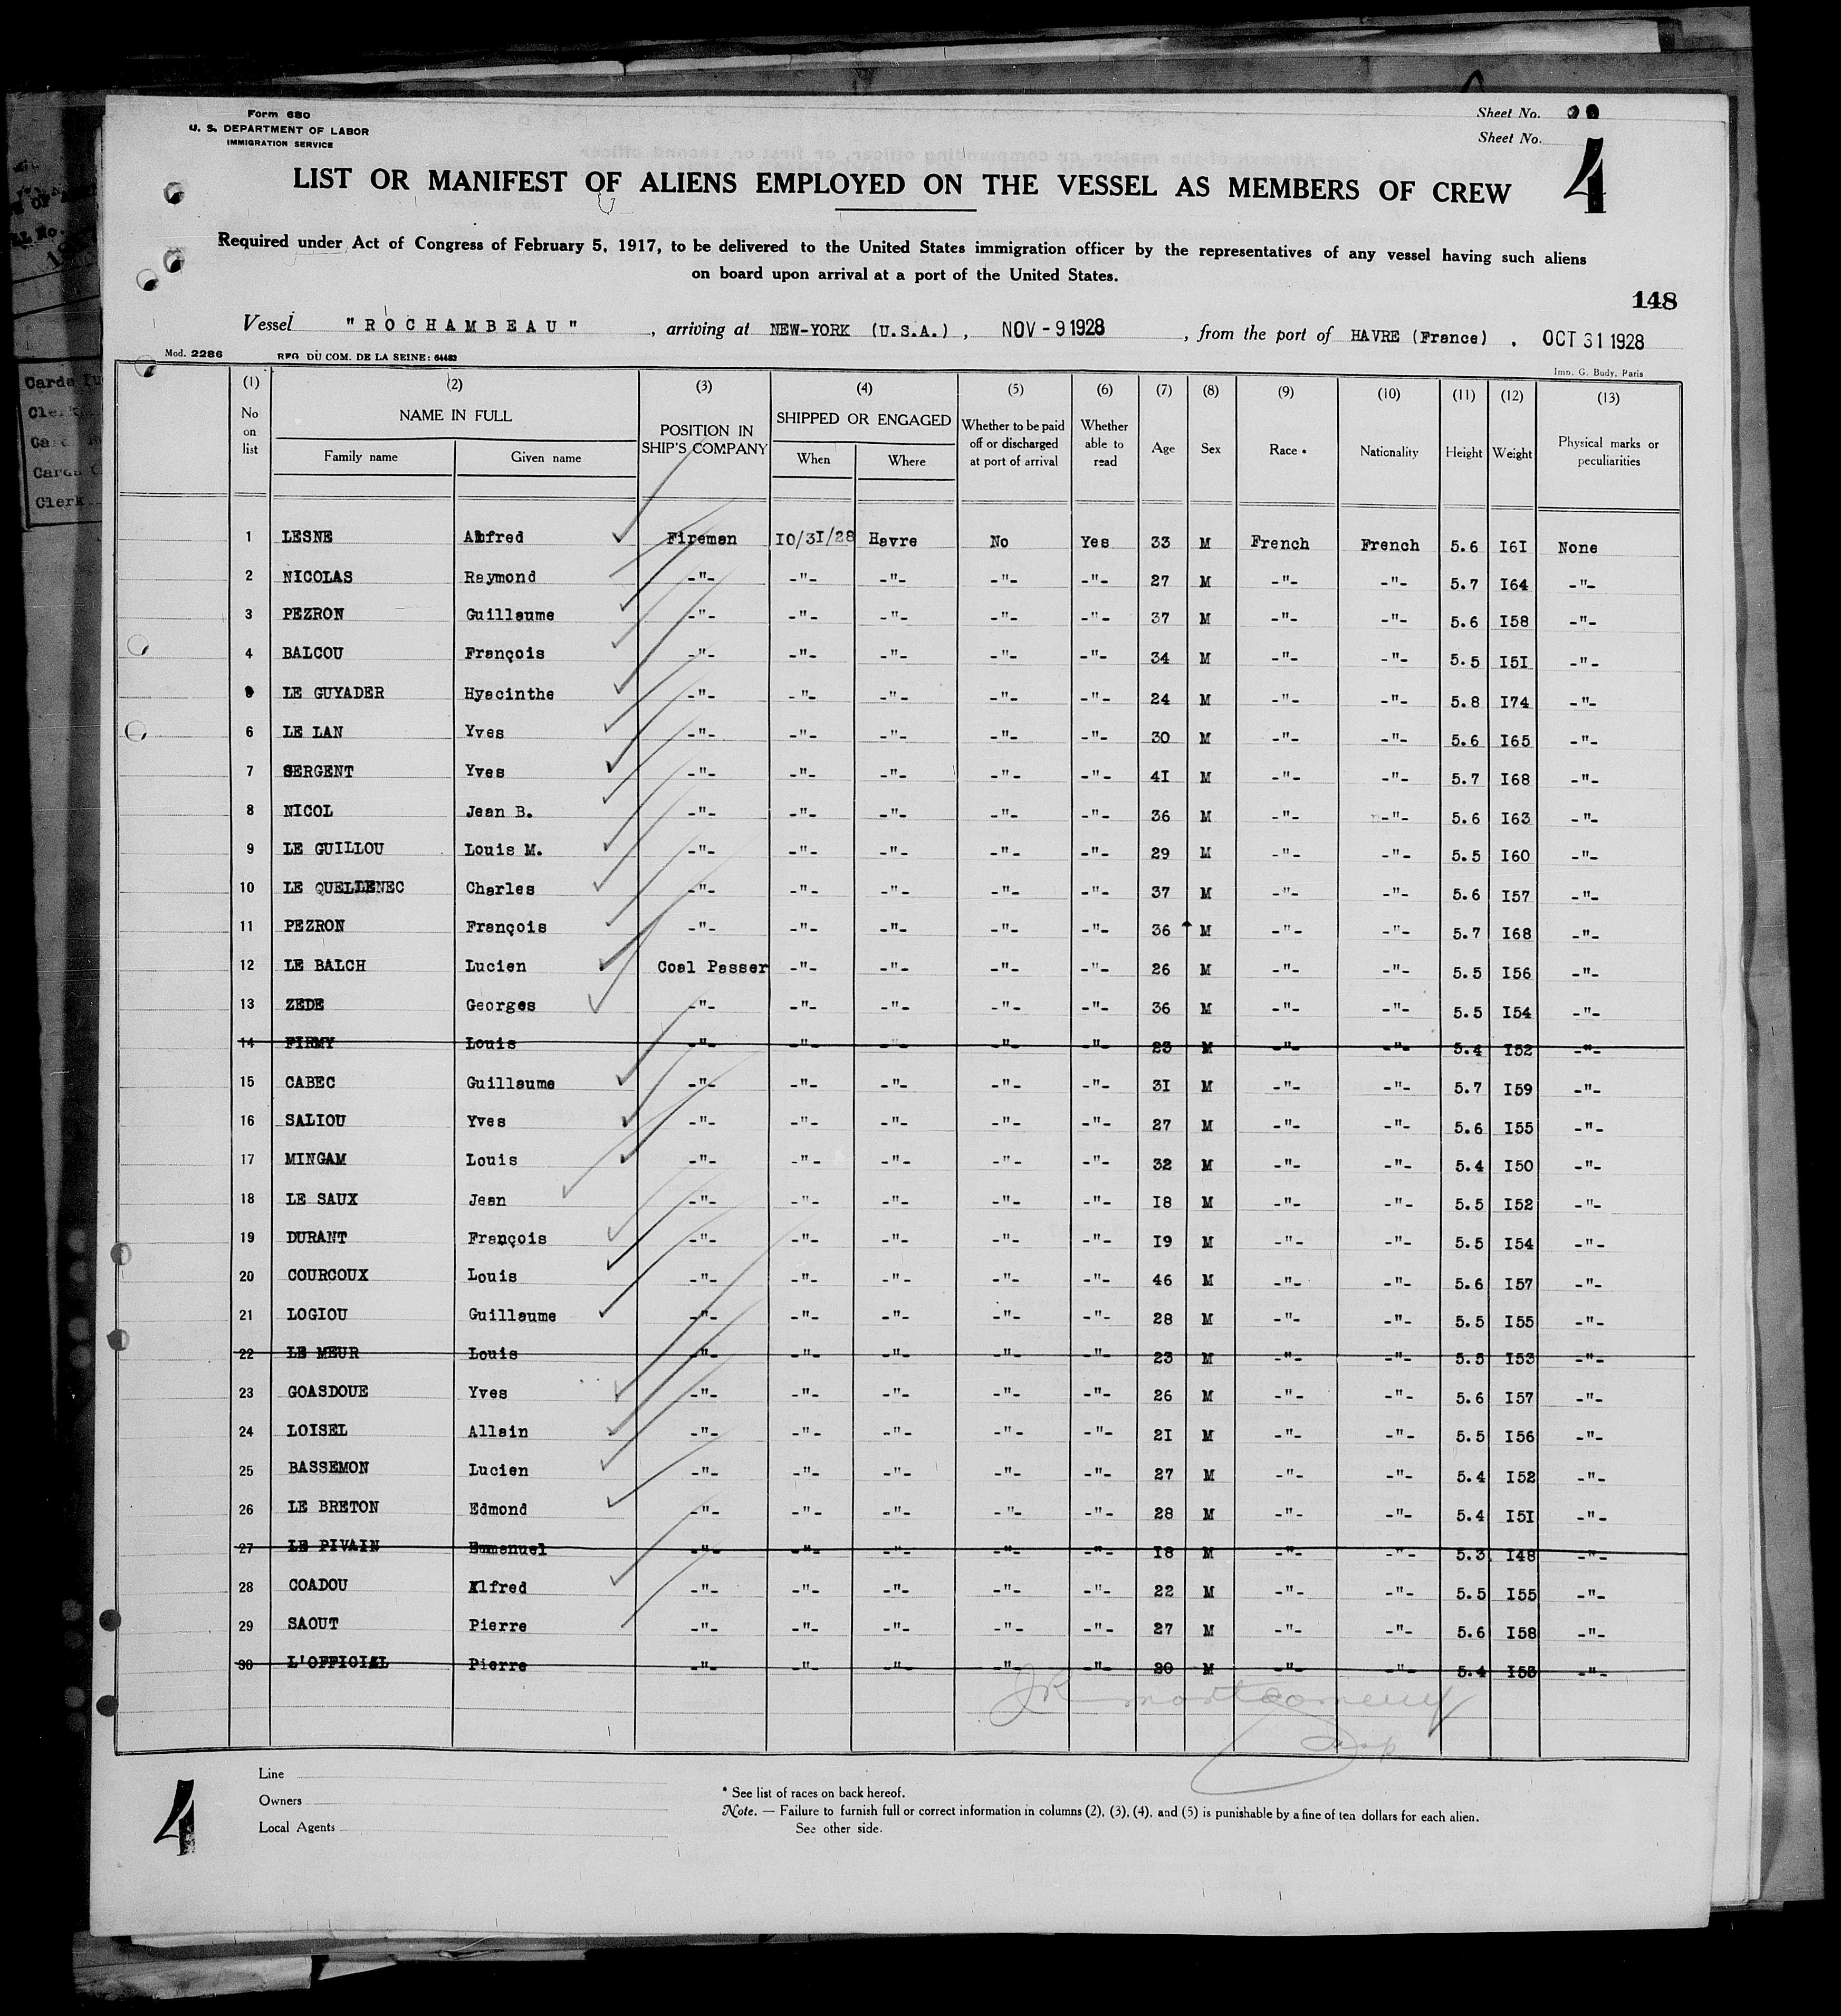 Form 680
U. S. DEPARTMENT OF LABOR
IMMIGRATION SERVICE
Sheet No.
Sheet No.
4
LIST OR MANIFEST OF ALIENS EMPLOYED ON THE VESSEL AS MEMBERS OF CREW
Required under Act of Congress of February 5, 1917, to be delivered to the United States immigration officer by the representatives of any vessel having such aliens
on board upon arrival at a port of the United States.
148
Vessel "ROCHAMBEAU", arriving at NEW-YORK (U.S.A.), NOV - 9 1928, from the port of HAVRE (France). OCT 31 1928
Mod. 2286 REG DU COM. DE LA SEINE: 64482 Imp. G. Budy, Paris
(1) (2) (3) (4) (5) (6) (7) (8) (9) (10) (11) (12) (13)
No on list NAME IN FULL POSITION IN SHIP'S COMPANY SHIPPED OR ENGAGED Whether to be paid off or discharged at port of arrival Whether able to read Age Sex Race * Nationality Height Weight Physical marks or peculiarities
Family name Given name When Where
1 LESNE Alfred Fireman 10/31/28 Havre No Yes 33 M French French 5.6 I6I None
2 NICOLAS Raymond -"- -"- -"- -"- -"- 27 M -"- -"- 5.7 I64 -"-
3 PEZRON Guillaume -"- -"- -"- -"- -"- 37 M -"- -"- 5.6 I58 -"-
4 BALCOU François -"- -"- -"- -"- -"- 34 M -"- -"- 5.5 I5I -"-
LE GUYADER Hyacinthe -"- -"- -"- -"- -"- 24 M -"- -"- 5.8 I74 -"-
6 LE LAN Yves -"- -"- -"- -"- -"- 30 M -"- -"- 5.6 I65 -"-
7 SERGENT Yves -"- -"- -"- -"- -"- 4I M -"- -"- 5.7 I68 -"-
8 NICOL Jean B. -"- -"- -"- -"- -"- 36 M -"- -"- 5.6 I63 -"-
9 LE GUILLOU Louis M. -"- -"- -"- -"- -"- 29 M -"- -"- 5.5 I60 -"-
10 LE QUELLENEC Charles -"- -"- -"- -"- -"- 37 M -"- -"- 5.6 I57 -"-
11 PEZRON François -"- -"- -"- -"- -"- 36 M -"- -"- 5.7 I68 -"-
12 LE BALCH Lucien Coal Passer -"- -"- -"- -"- 26 M -"- -"- 5.5 I56 -"-
13 ZEDE Georges -"- -"- -"- -"- -"- 36 M -"- -"- 5.5 I54 -"-
14 FIRMY Louis -"- -"- -"- -"- -"- 23 M -"- -"- 5.4 I52 -"-
15 CABEC Guillaume -"- -"- -"- -"- -"- 3I M -"- -"- 5.7 I59 -"-
16 SALIOU Yves -"- -"- -"- -"- -"- 27 M -"- -"- 5.6 I55 -"-
17 MINGAM Louis -"- -"- -"- -"- -"- 32 M -"- -"- 5.4 I50 -"-
18 LE SAUX Jean -"- -"- -"- -"- -"- I8 M -"- -"- 5.5 I52 -"-
19 DURANT François -"- -"- -"- -"- -"- I9 M -"- -"- 5.5 I54 -"-
20 COURCOUX Louis -"- -"- -"- -"- -"- 46 M -"- -"- 5.6 I57 -"-
21 LOGIOU Guillaume -"- -"- -"- -"- -"- 28 M -"- -"- 5.5 I55 -"-
22 LE MEUR Louis -"- -"- -"- -"- -"- 23 M -"- -"- 5.5 I53 -"-
23 GOASDOUE Yves -"- -"- -"- -"- -"- 26 M -"- -"- 5.6 I57 -"-
24 LOISEL Allain -"- -"- -"- -"- -"- 2I M -"- -"- 5.5 I56 -"-
25 BASSEMON Lucien -"- -"- -"- -"- -"- 27 M -"- -"- 5.4 I52 -"-
26 LE BRETON Edmond -"- -"- -"- -"- -"- 28 M -"- -"- 5.4 I5I -"-
27 LE PIVAIN Emmanuel -"- -"- -"- -"- -"- I8 M -"- -"- 5.3 I48 -"-
28 COADOU Alfred -"- -"- -"- -"- -"- 22 M -"- -"- 5.5 I55 -"-
29 SAOUT Pierre -"- -"- -"- -"- -"- 27 M -"- -"- 5.6 I58 -"-
30 L'OFFICIAL Pierre -"- -"- -"- -"- -"- 20 M -"- -"- 5.4 I53 -"-
JR Montgomery
Line
Owners
Local Agents
4
* See list of races on back hereof.
Note. — Failure to furnish full or correct information in columns (2), (3), (4), and (5) is punishable by a fine of ten dollars for each alien.
See other side.